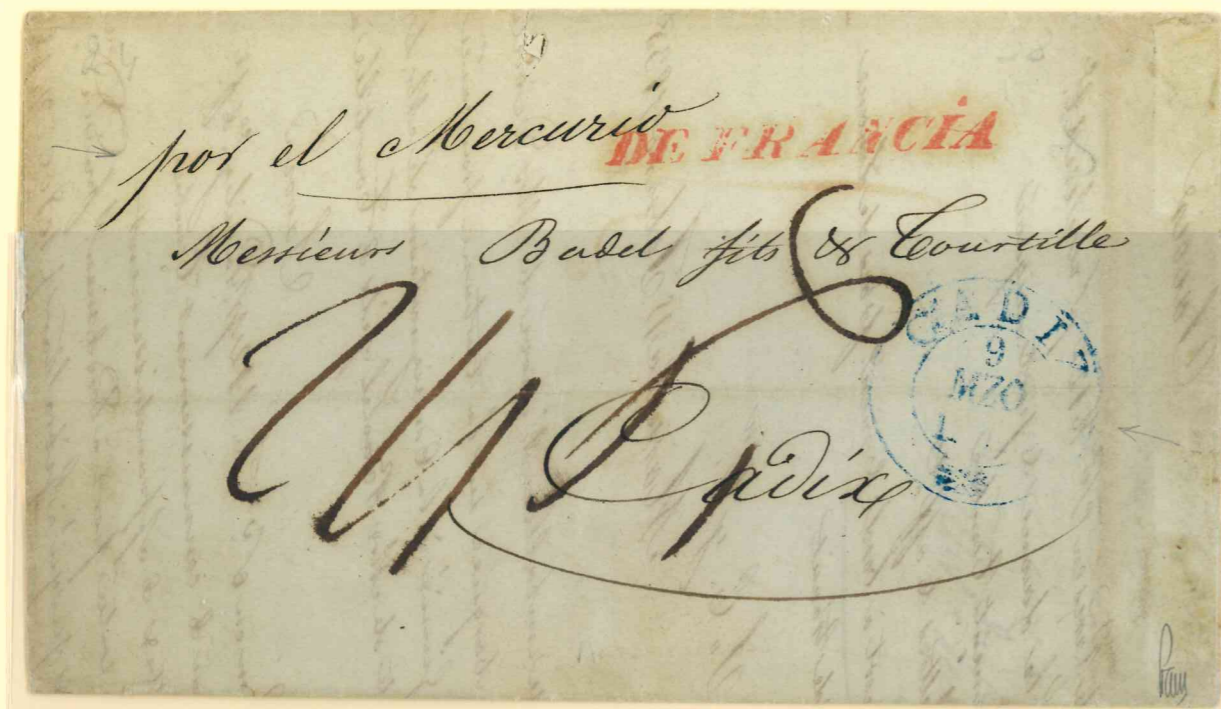 24
por el Mercurio
DE FRANCIA
Messieurs Badel fils & Tourtille
CADIZ
9
MZO
Cadix